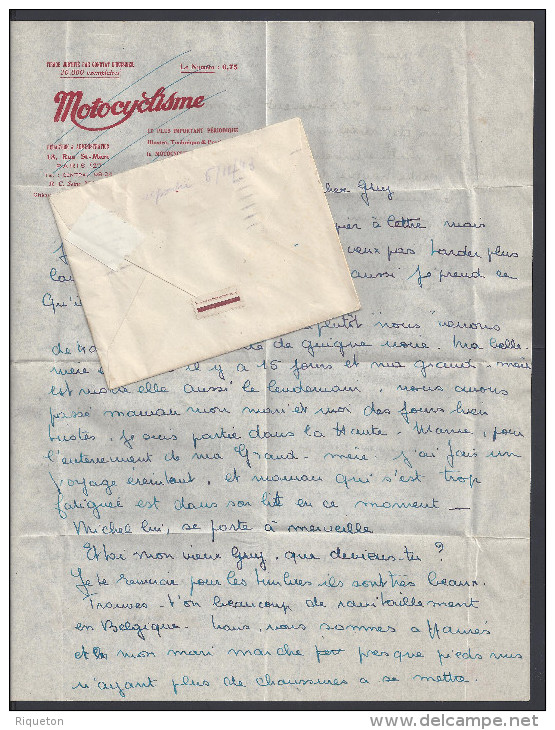 TIRAGE JUSTIFIÉ PAR CONTRAT D'HUISSIER
20 000 exemplaires
Le Numéro : 0,75
Motocyclisme
LE PLUS IMPORTANT PÉRIODIQUE
Illustré, Technique &
RÉDACTION & ADMINISTRATION
Rue St-Marc
PARIS (2e)
5/10/43
cher Guy
papier à lettre mais
veux pas tarder plus
aussi je prend ce
Qu'i
plutôt "nous" venons
de guigne noire. Ma belle
mère il y a 15 jours et ma grand-mère
est morte elle aussi le lendemain, nous avons
passé maman mon mari et moi des jours bien
tristes, je suis partie dans la Haute Marne, pour
l'enterrement de ma Grand-mère j'ai fais un
voyage ereintant, et maman qui s'est trop
fatiguée est dans son lit en ce moment —
Michel lui, se porte à merveille
Et toi mon vieux Guy, que deviens-tu ?
Je te remercie pour les timbres ils sont très beaux.
Trouves-t'on beaucoup de ravitaillement
en Belgique. Nous, nous sommes affamés
et mon mari marche presque pieds nus
n'ayant plus de chaussures a se mettre.
Riqueton
delcampe.net